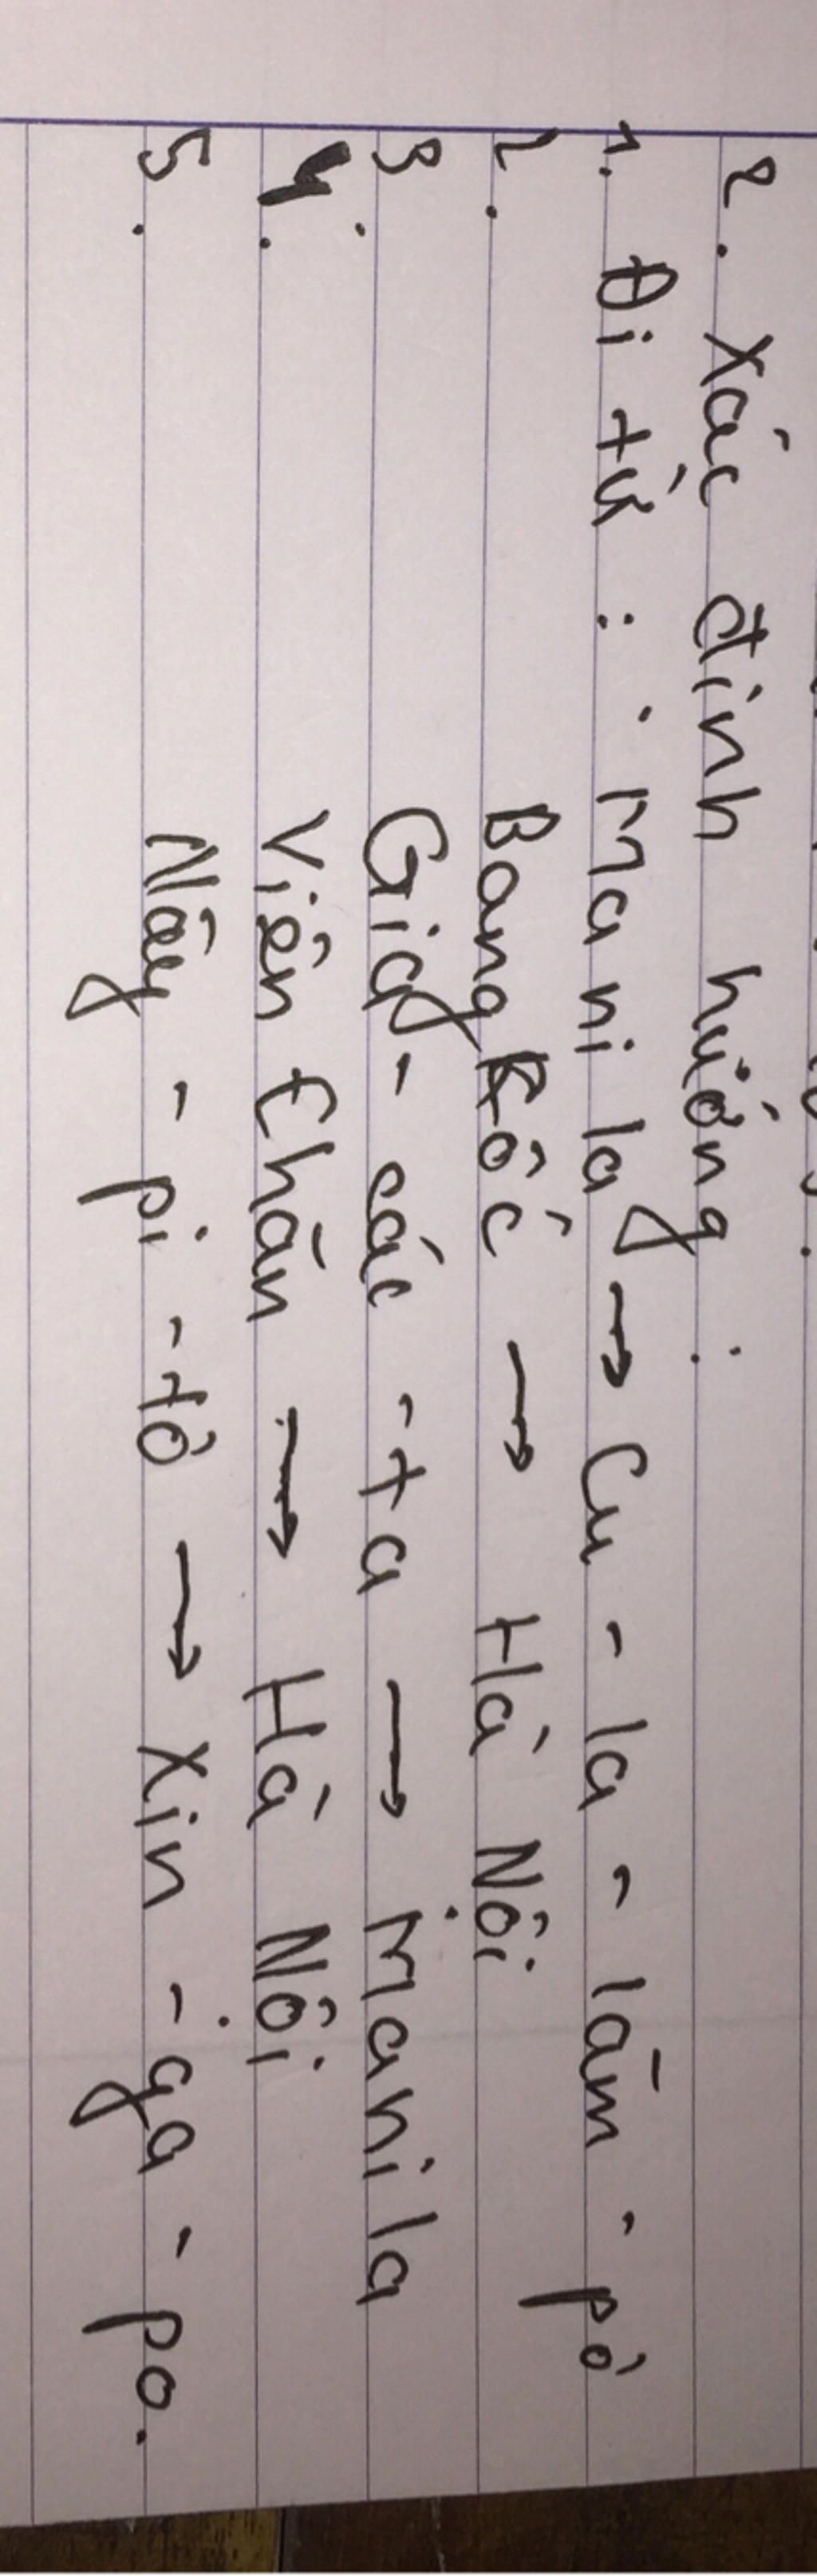 2. Xác định hướng:
1. Đi từ: Manila → Cu-la-lăm-pơ
2. Bangkốc → Hà Nội
3. Gia-các-ta → Manila
4. Viên chăn → Hà Nội
5. Nây-pi-tô → Xin-ga-po.